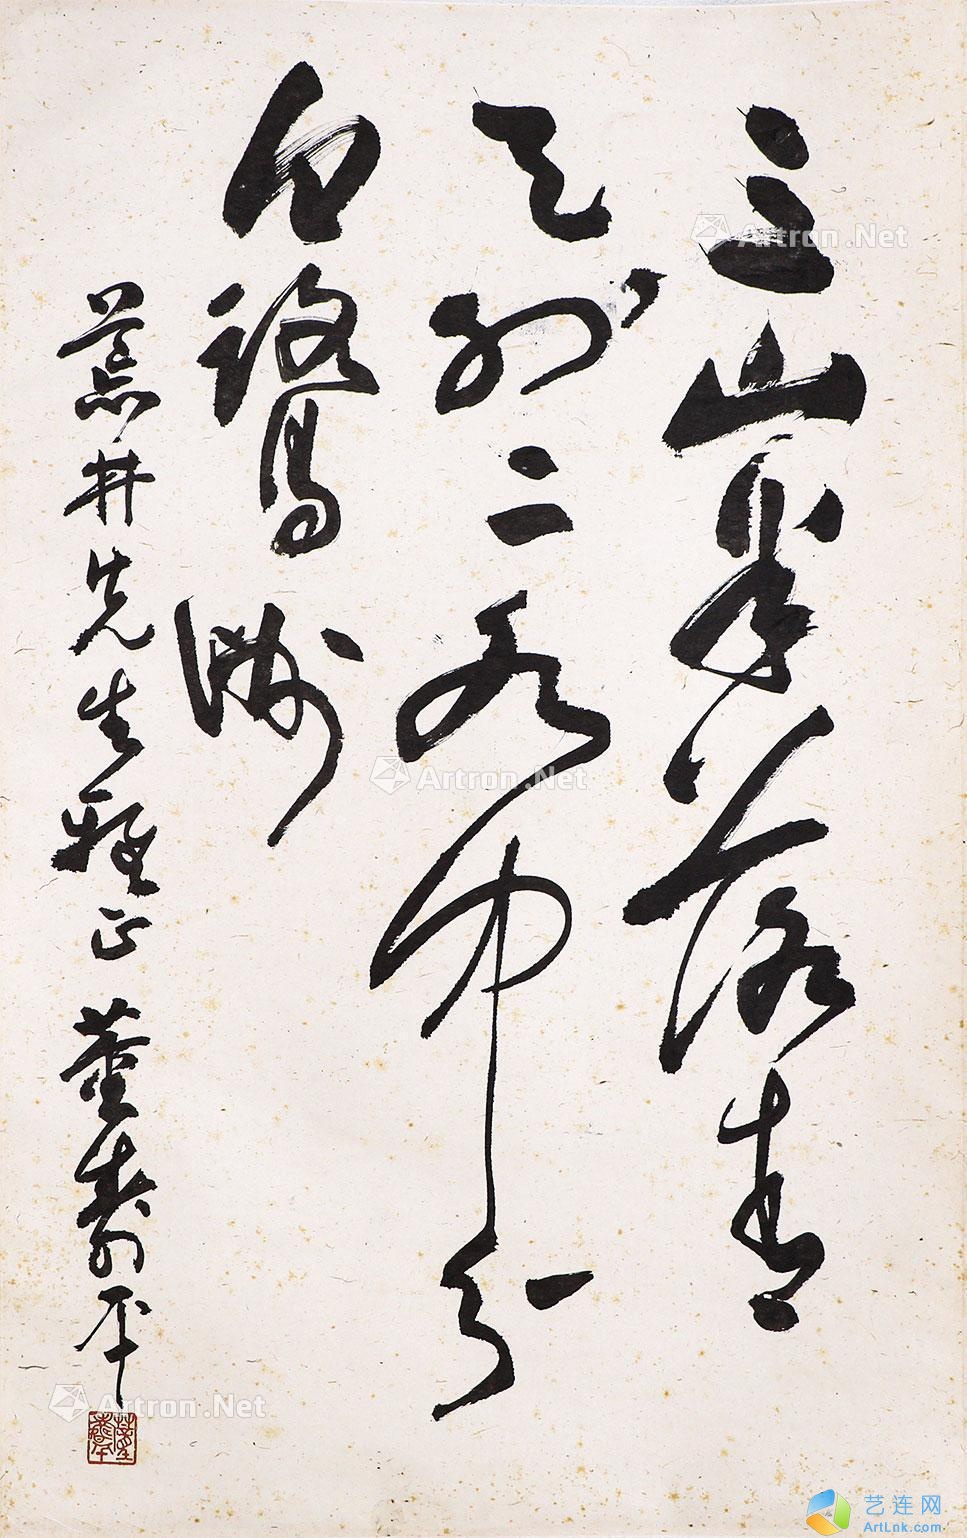 三山半落青
天外二水中分
白鷺洲
荒井先生雅正 董壽平
董壽平
Artron.Net
Artron.Net
Artron.Net
艺连网
ArtLnk.com